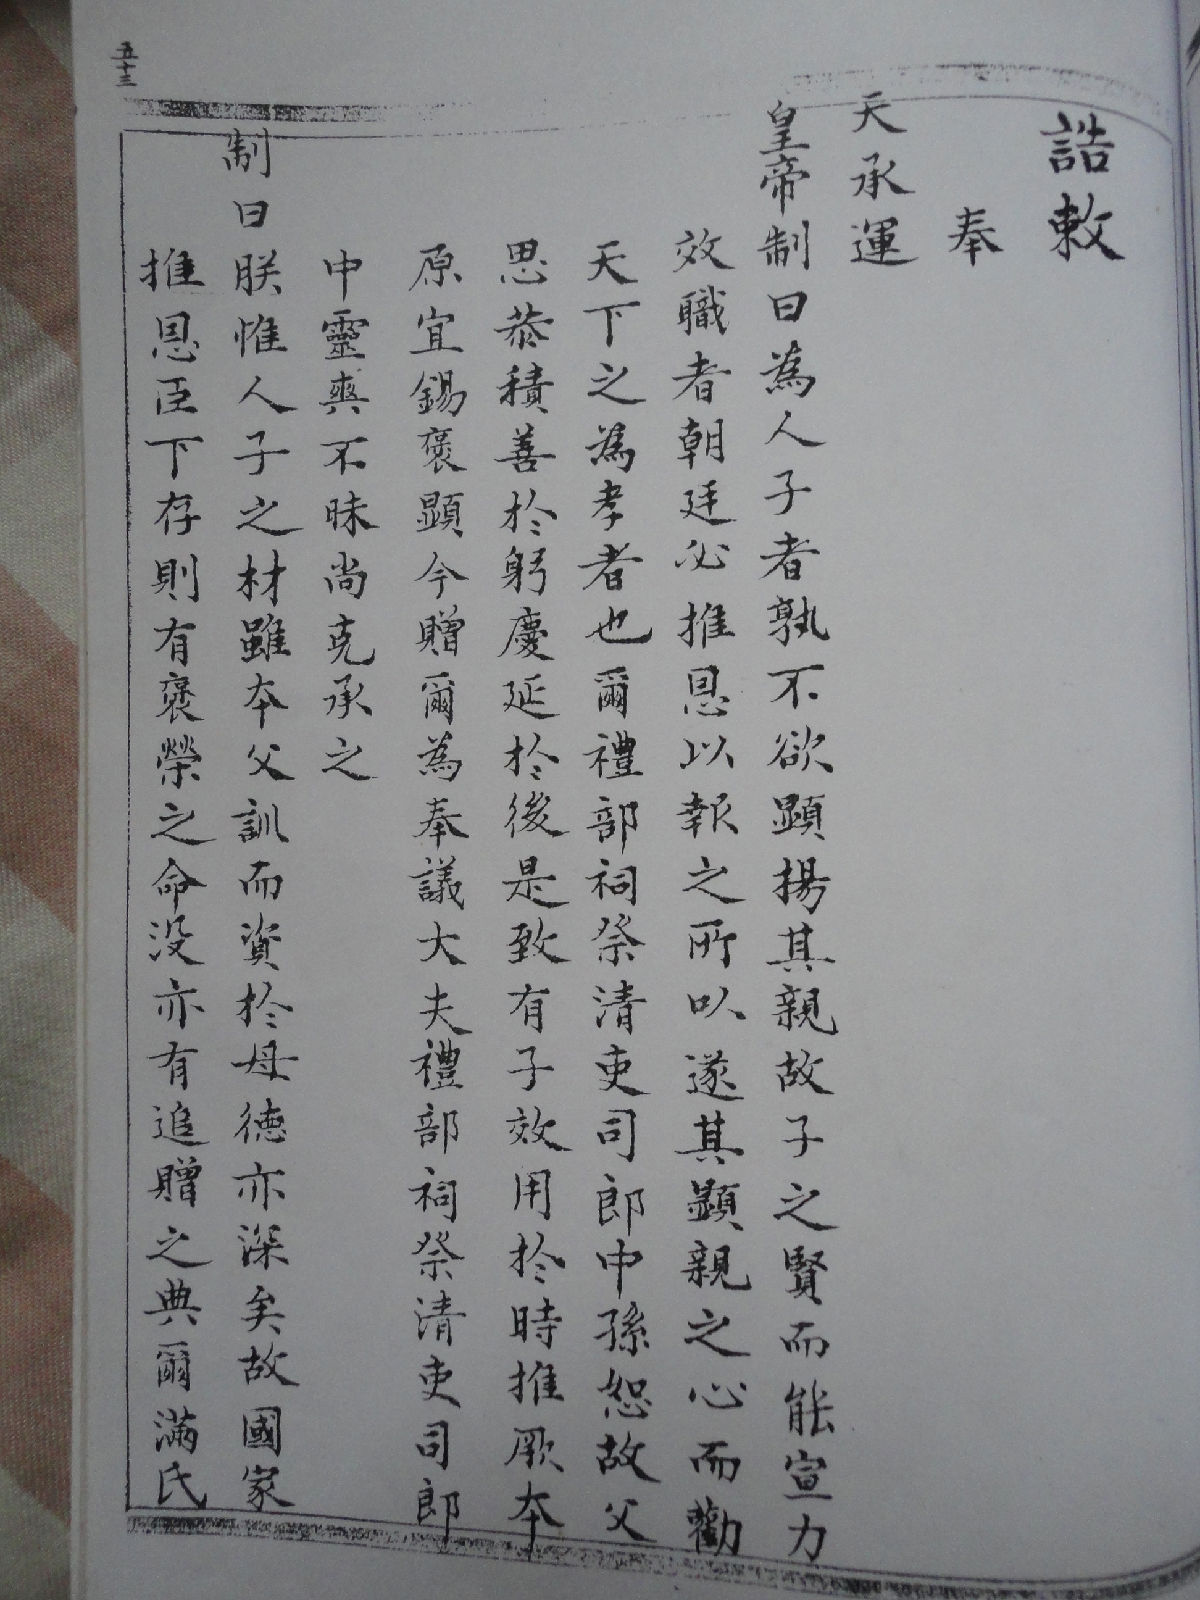 誥敕
奉
天承運
皇帝制曰為人子者孰不欲顯揚其親故子之賢而能宣力
效職者朝廷必推恩以報之所以遂其顯親之心而勸
天下之為孝者也爾禮部祠祭清吏司郎中孫恕故父
思恭積善於躬慶延於後是致有子效用於時推厥本
原宜錫褒顯今贈爾為奉議大夫禮部祠祭清吏司郎
中靈爽不昧尚克承之
制曰朕惟人子之材雖本父訓而資於母德亦深矣故國家
推恩臣下存則有褒榮之命沒亦有追贈之典爾滿氏
五十三